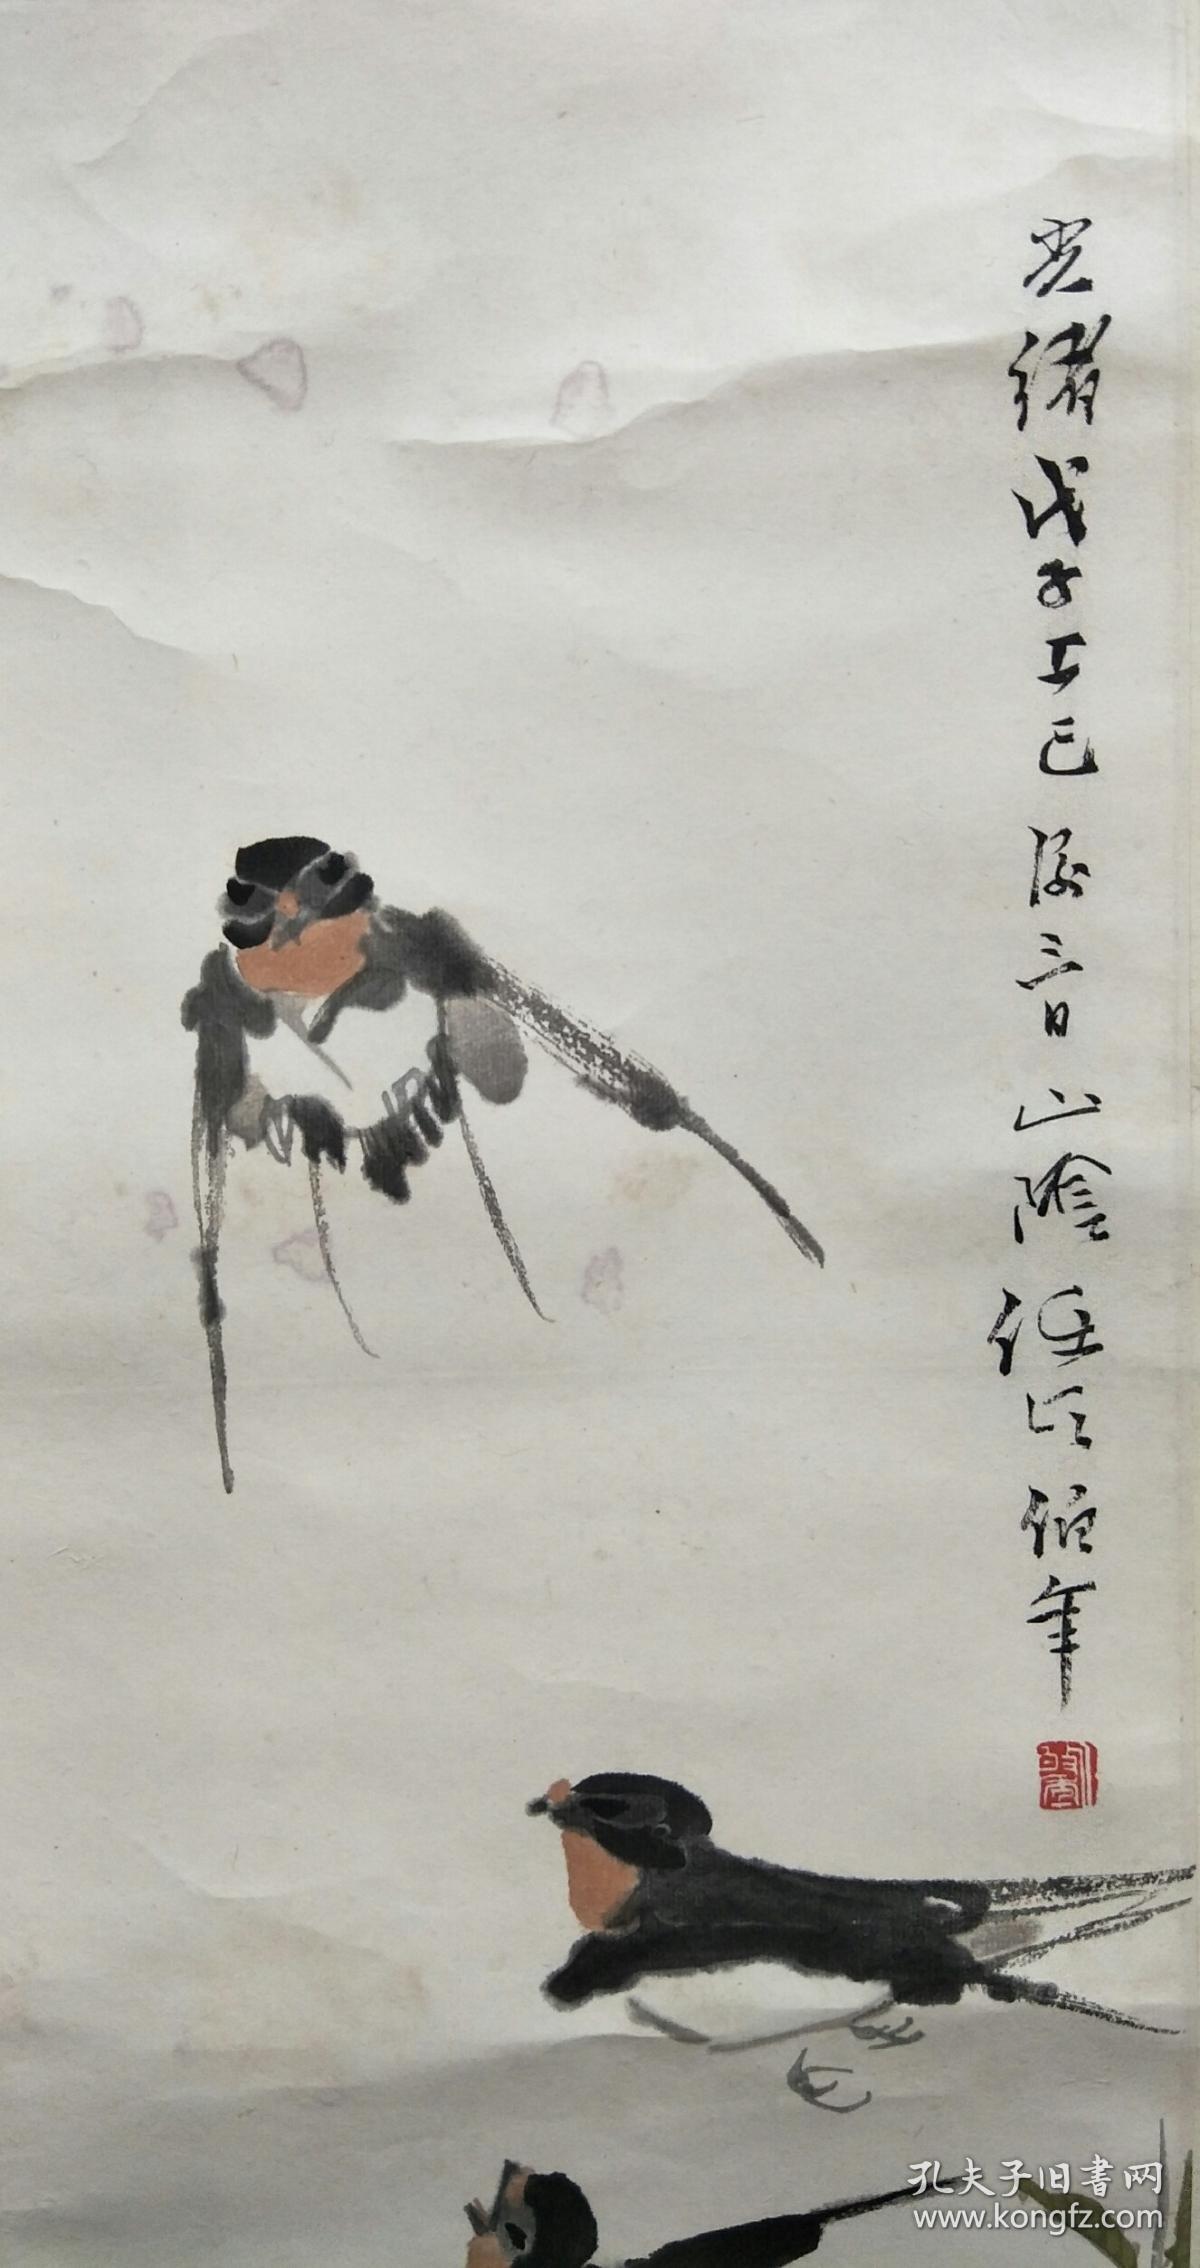 光緒戊子上巳後三日山陰任頤伯年
孔夫子旧書网
www.kongfz.com